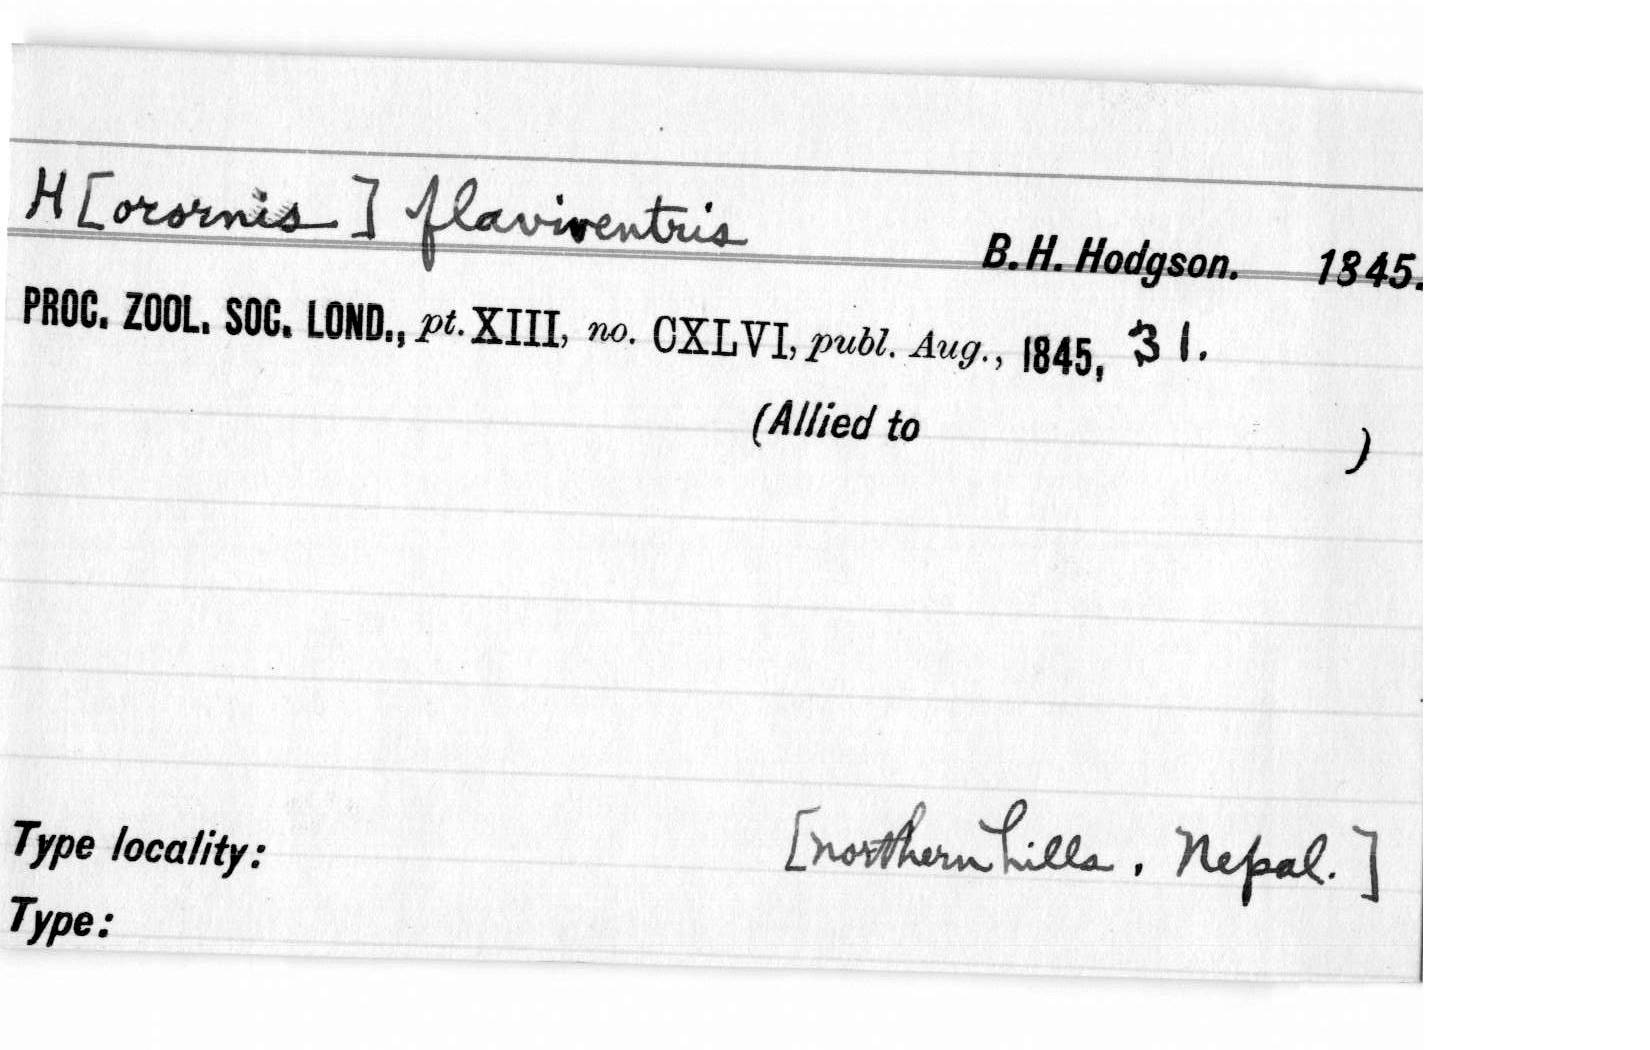 H[orornis] flaviventris
B. H. Hodgson. 1845.
PROC. ZOOL. SOC. LOND., pt. XIII, no. CXLVI, publ. Aug., 1845, 31.
(Allied to )
Type locality: [northern hills, Nepal.]
Type: